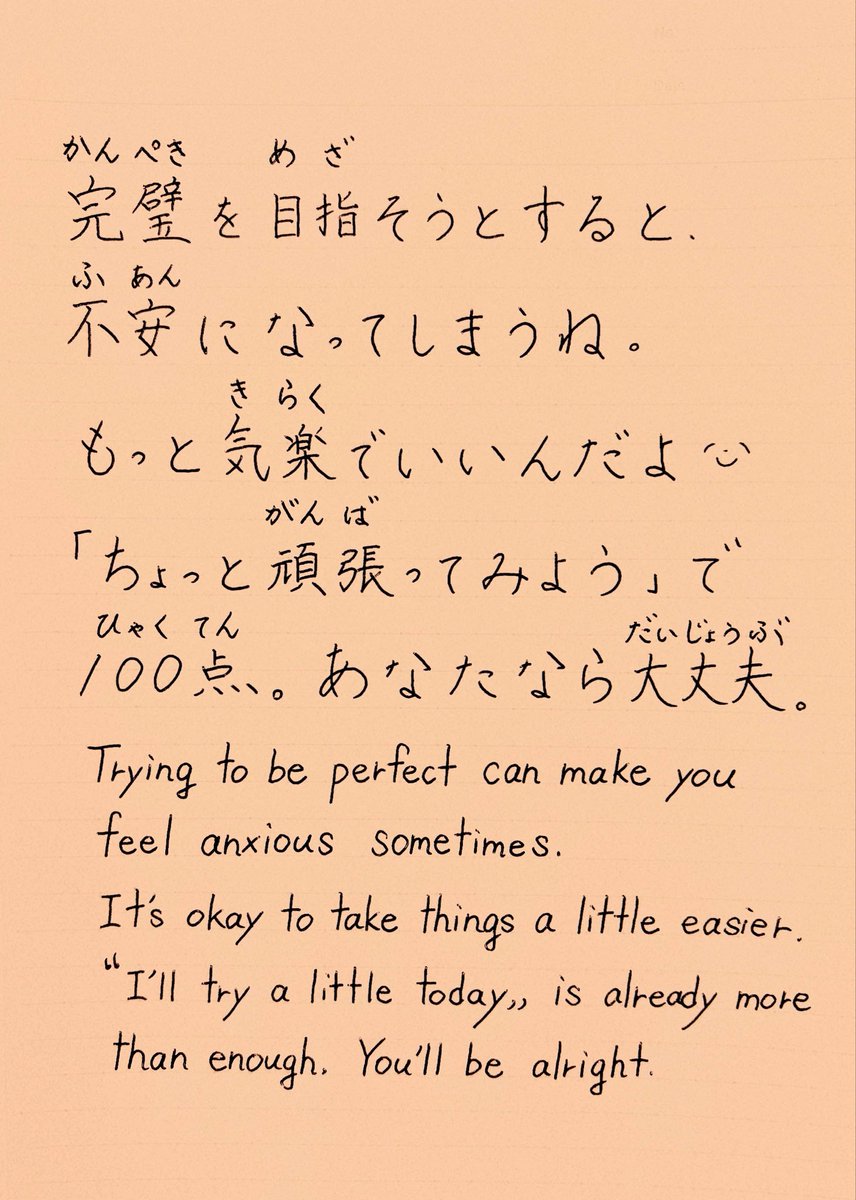 かんぺき めざ
完璧を目指そうとすると、
ふあん
不安になってしまうね。
きらく
もっと気楽でいいんだよ
がんば
「ちょっと頑張ってみよう」で
ひゃくてん だいじょうぶ
100点、。あなたなら大丈夫。
Trying to be perfect can make you
feel anxious sometimes.
It's okay to take things a little easier.
“I'll try a little today,, is already more
than enough. You'll be alright.